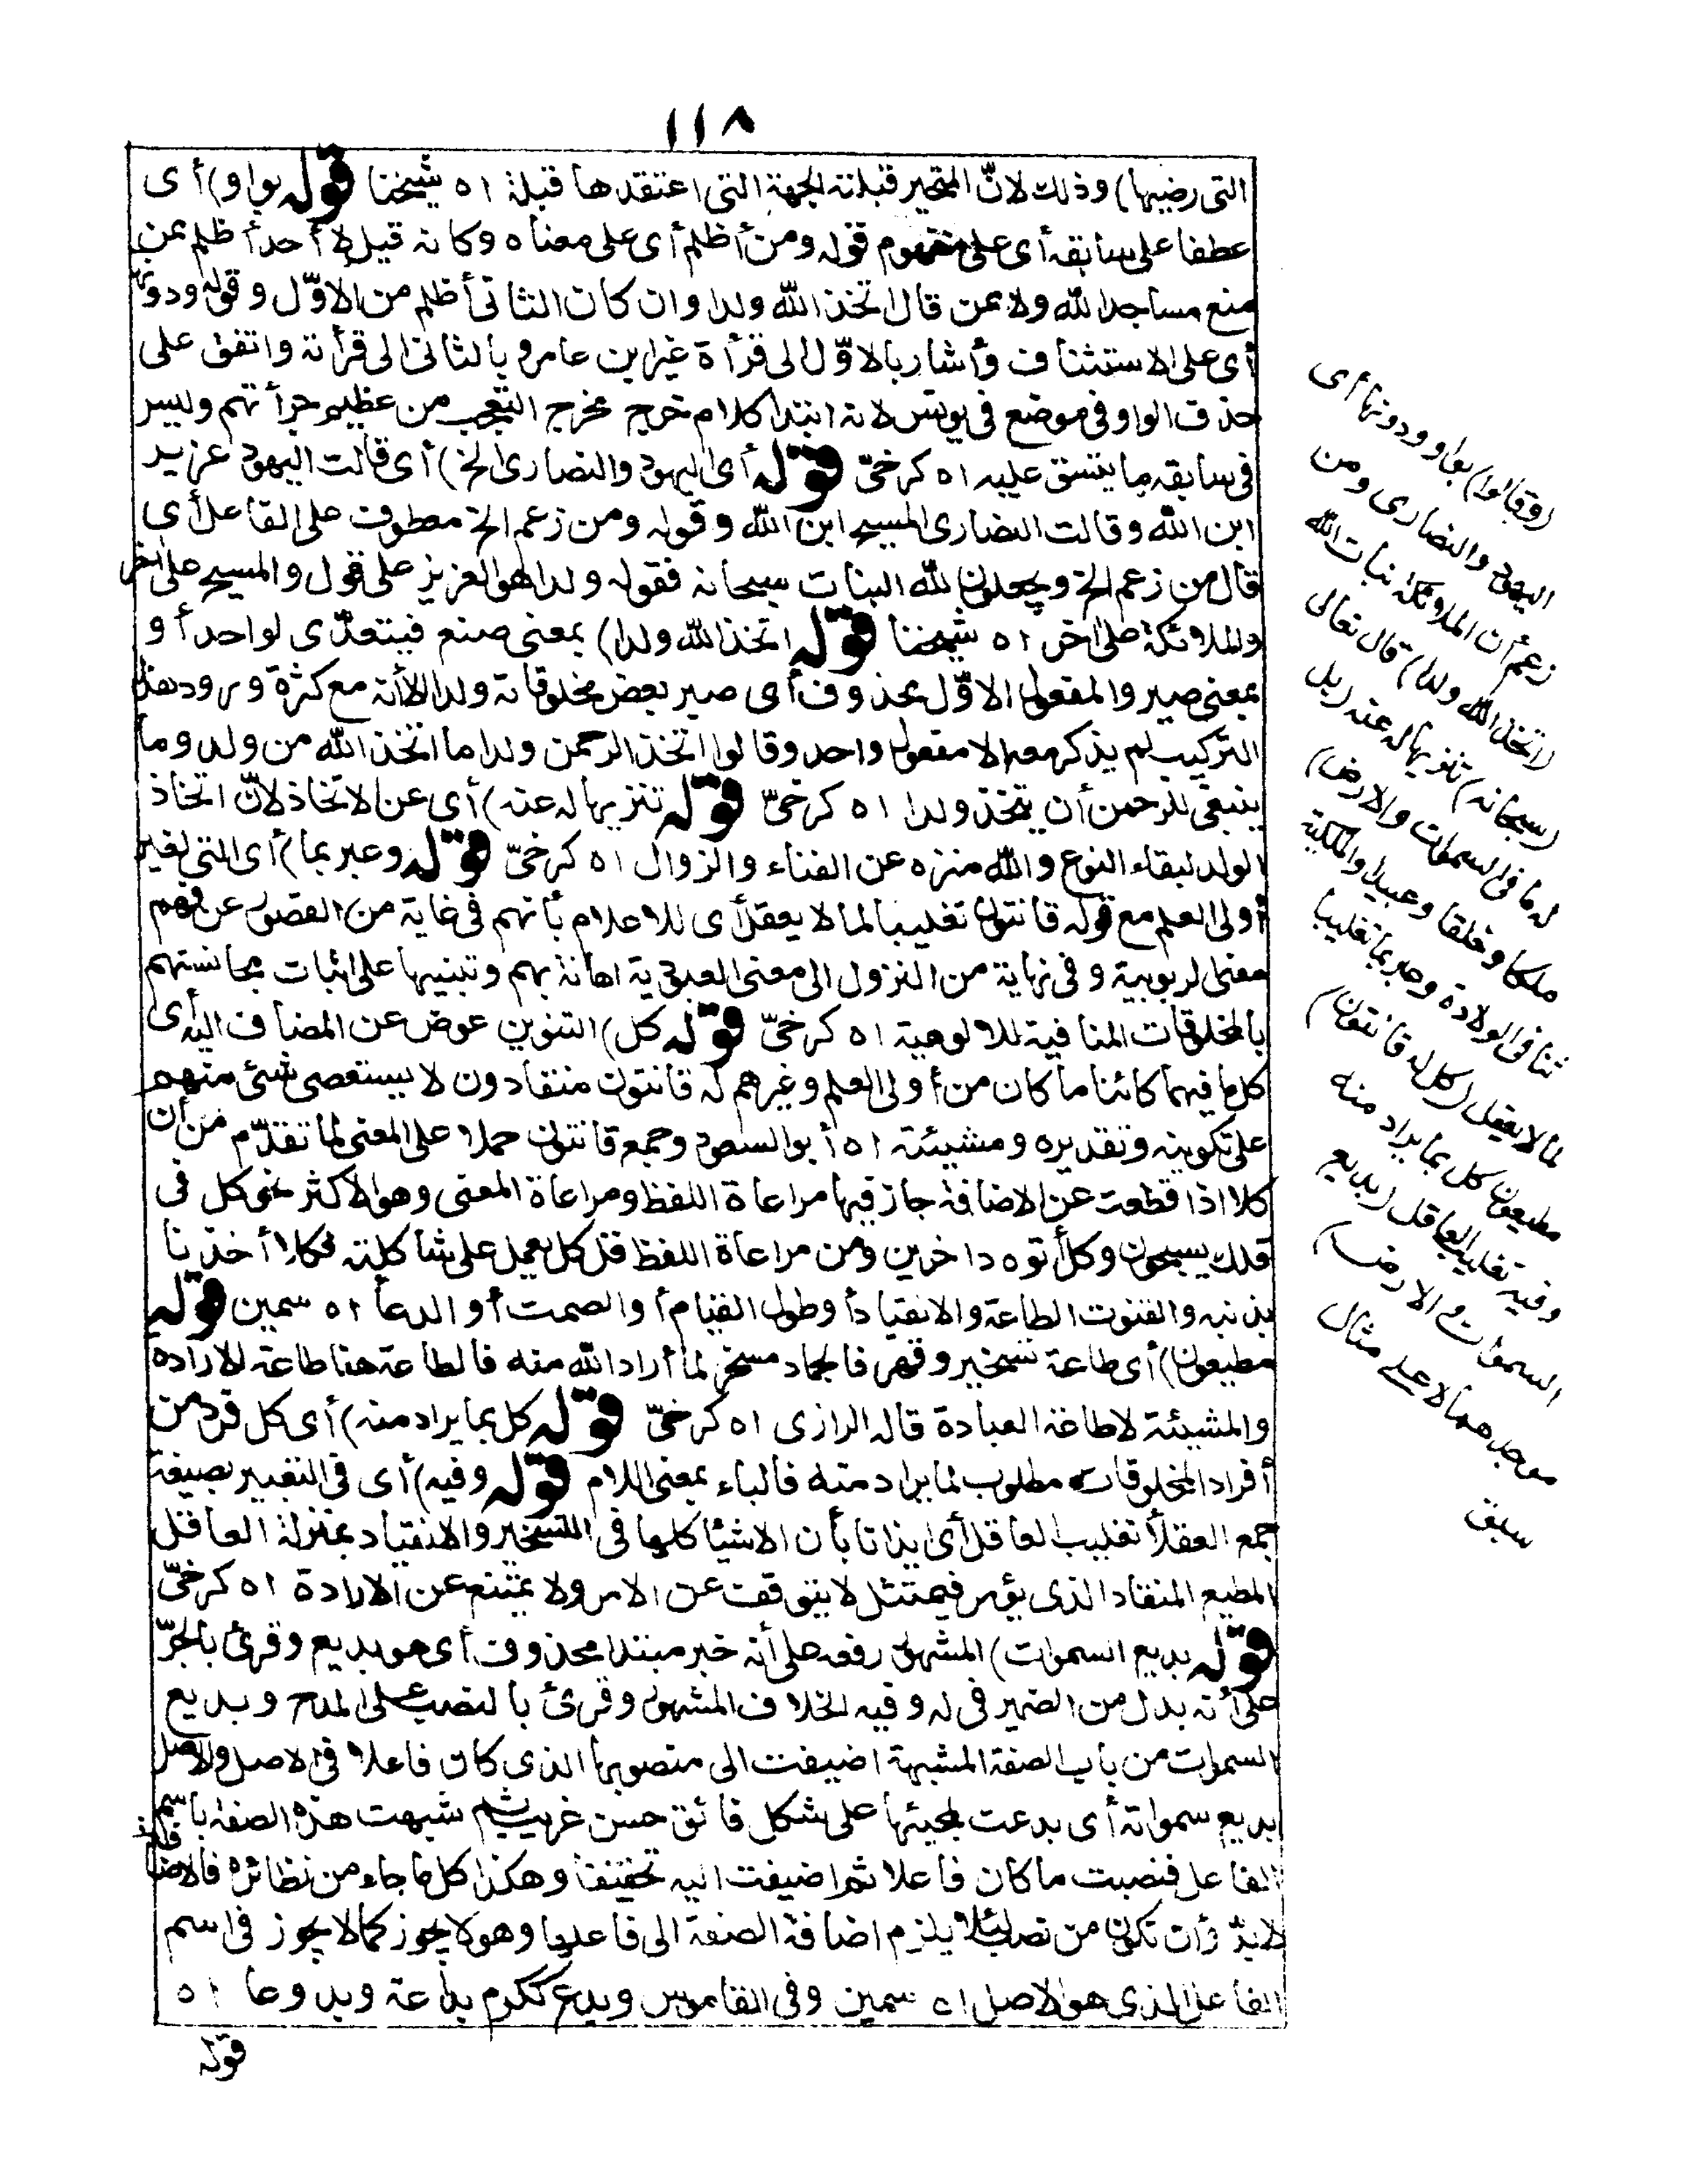 ١١٨
التى رضيها) وذلك لانّ المتحير قبلته الجهة التى اعتقدها قبلة اه شيخنا قوله بواو) أى
عطفا على سابقه أى على مفهوم قوله ومن أظلم أى على معناه وكانه قيل لا أحد أظلم ممن
منع مساجد الله ولا ممن قال اتخذ الله ولدا وان كان الثانى أظلم من الاوّل وقوله ودونها
أى على الاستئناف وأشار بالاوّل الى قرأة غير ابن عامر وبالثانى الى قرأته واتفق على
حذف الواو فى موضع فى يونس لانه ابتدا كلام خرج مخرج التعجب من عظيم جرأتهم وليس
فى سابقه ما يتسق عليه اه كرخىّ قوله أى اليهود والنصارى الخ) أى قالت اليهود عزير
ابن الله وقالت النصارى المسيح ابن الله وقوله ومن زعم الخ معطوف على الفاعل أى
قال من زعم الخ ويجعلون لله البنات سبحانه فقوله ولدا هو العزيز على قول والمسيح على اخر
والملائكة على اخر اه شيخنا قوله اتخذ الله ولدا) بمعنى صنع فيتعدّى لواحد أو
بمعنى صير والمفعول الاوّل محذوف أى صير بعض مخلوقاته ولدا لأنه مع كثرة ورود هذا
التركيب لم يذكر معه الا مفعول واحد وقالوا اتخذ الرحمن ولدا ما اتخذ الله من ولد وما
ينبغى للرحمن أن يتخذ ولدا اه كرخىّ قوله تنزيها له عنه) أى عن الاتخاذ لانّ اتخاذ
الولد لبقاء النوع والله منزه عن الفناء والزوال اه كرخىّ قوله وعبر بما) أى التى لغير
أولى العلم مع قوله قانتون تغليبا لما لا يعقل أى للاعلام بأنهم فى غاية من القصور عن فهم
معنى الربوبية وفى نهاية من النزول الى معنى العبودية اهانة بهم وتنبيها على اثبات مجانستهم
بالمخلوقات المنافية للالوهية اه كرخىّ قوله كل) التنوين عوض عن المضاف اليه أى
كل ما فيهما كائنا ما كان من أولى العلم وغيرهم له قانتون منقادون لا يستعصى شئ منهم
على تكوينه وتقديره ومشيئته اه أبو السعود وجمع قانتون حملا على المعنى لما تقدّم من أن
كلا اذا قطعت عن الاضافة جاز فيها مراعاة اللفظ ومراعاة المعنى وهو الاكثر نحو كل فى
فلك يسبحون وكل أتوه داخرين ومن مراعاة اللفظ قل كل يعمل على شاكلته فكلا أخذنا
بذنبه والقنوت الطاعة والانقياد أو طول القيام أو الصمت أو الدعأ اه سمين قوله
مطيعون) أى طاعة تسخير وقهر فالجماد مسخر لما أراد الله منه فالطاعة هنا طاعة للارادة
والمشيئة لا طاعة العبادة قاله الرازى اه كرخىّ قوله كل بما يراد منه) أى كل فرد من
أفراد المخلوقات مطلوب لما يراد منه فالباء بمعنى اللام قوله وفيه) أى فى التعبير بصيغة
جمع العقلأ تغليب العاقل أى ايذانا بأن الاشيأ كلها فى التسخير والانقياد بمنزلة العاقل
المطيع المنقاد الذى يؤمر فيمتثل لا يتوقف عن الامر ولا يمتنع عن الارادة اه كرخىّ
قوله بديع السموات) المشهور رفعه على أنه خبر مبتدا محذوف أى هو بديع وقرئ بالجرّ
على أنه بدل من الضمير فى له وفيه الخلاف المشهور وقرئ بالنصب على المدح وبديع
السموات من باب الصفة المشبهة اضيفت الى منصوبها الذى كان فاعلا فى الاصل والاصل
بديع سمواته أى بدعت لمجيئها على شكل فائق حسن غريب ثم شبهت هذه الصفة باسم
الفاعل فنصبت ما كان فاعلا ثم اضيفت اليه تخفيفا وهكذا كل ما جاء من نظائره فالاضافة
لابدّ وأن تكون من نصب لئلا يلزم اضافة الصفة الى فاعلها وهو لا يجوز كما لا يجوز فى اسم
الفاعل الذى هو الاصل اه سمين وفى القاموس وبدع ككرم بداعة وبدوعا اه
قوله
(وقالوا) بواو ودونها أى
اليهود والنصارى ومن
زعم أن الملائكة بنات الله
(اتخذ الله ولدا) قال تعالى
(سبحانه) تنزيها له عنه (بل
له ما فى السموات والارض)
ملكا وخلقا وعبيدا والملكية
تنافى الولادة وعبر بما تغليبا
لما لا يعقل (كل له قانتون)
مطيعون كل بما يراد منه
وفيه تغليب العاقل (بديع
السموات والارض)
موجدهما لا على مثال
سبق